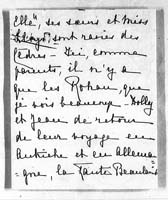 Ella", ses sœurs et Miss
Lloyd", sont ravies des
Cèdres - Ici, comme
parents, il n'y a
que les Rohan, que
je vois beaucoup. Dolly
et Jean de retour
de leur voyage en
Autriche et en Allema
=gne, la Tante Beaulain